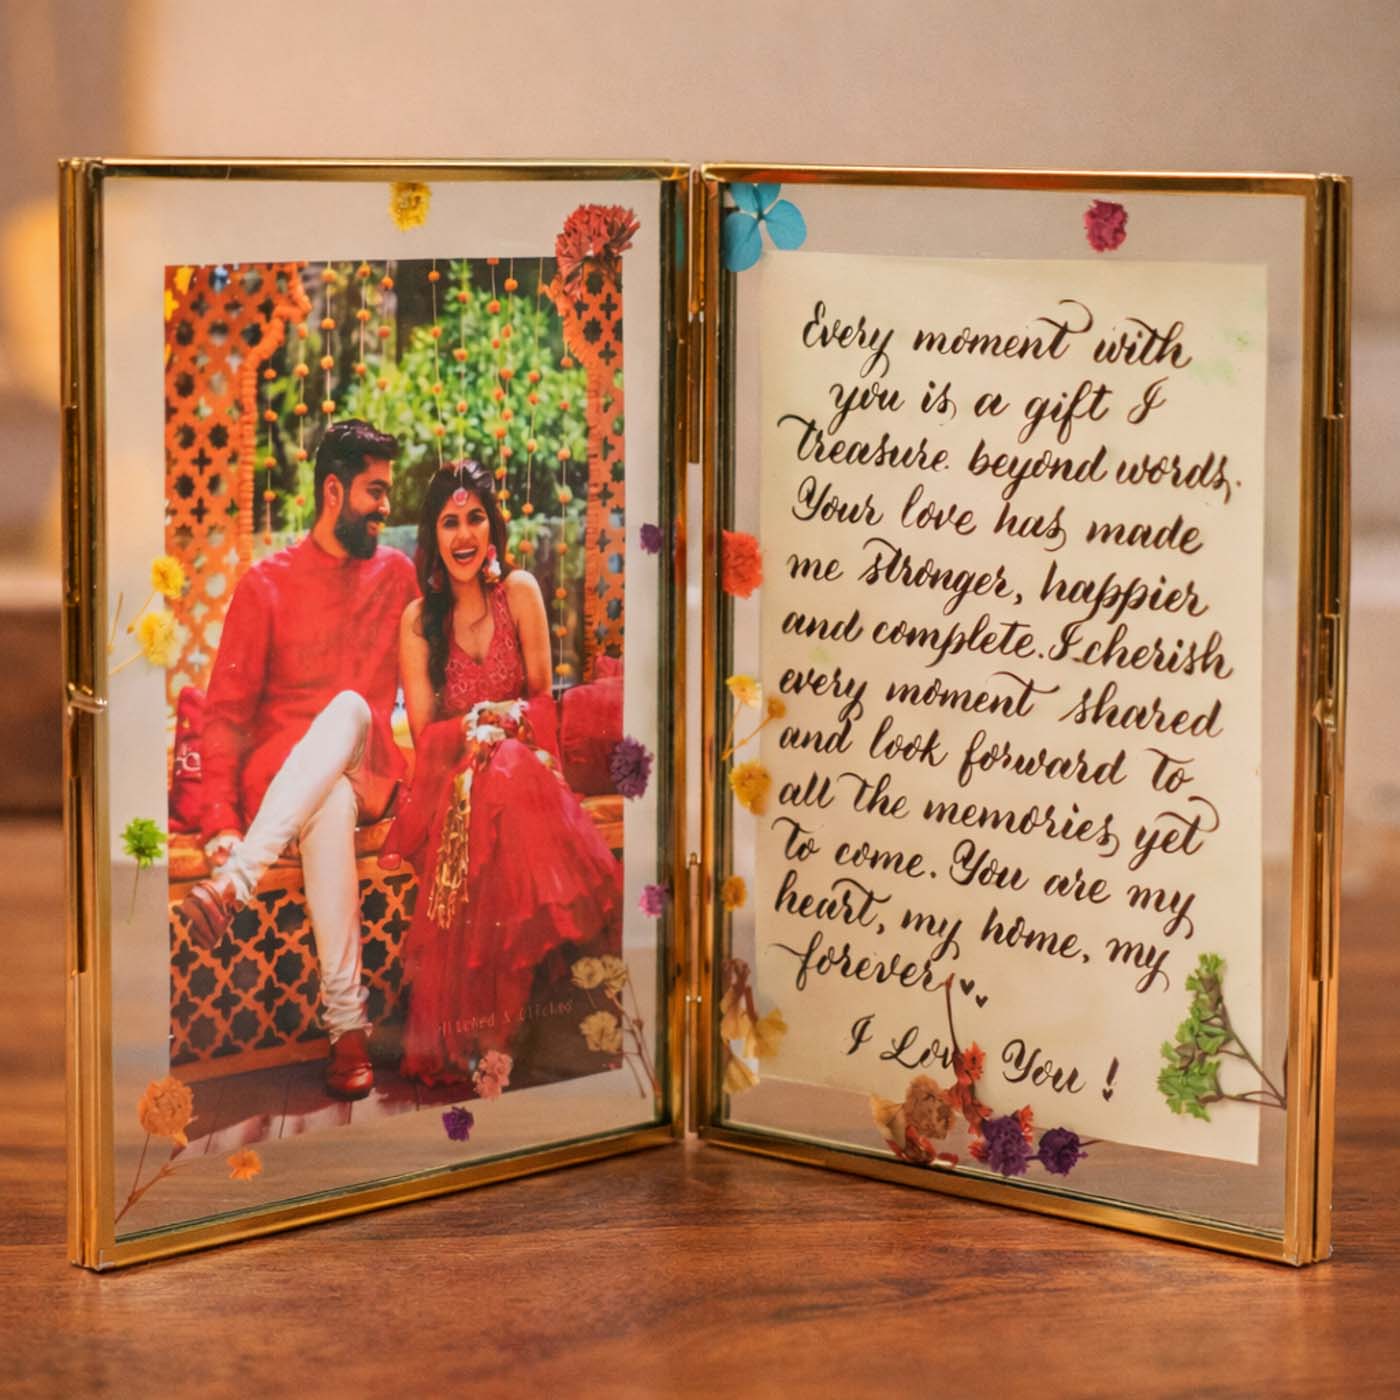 Every moment with
you is a gift I
treasure beyond words.
Your love has made
me stronger, happier
and complete. I cherish
every moment shared
and look forward to
all the memories yet
to come. You are my
heart, my home, my
forever
I Love You!
Hitched & Clicked